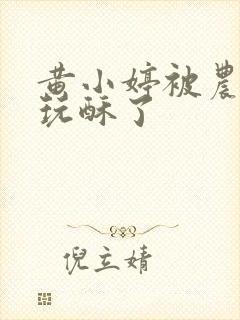 黄小婷被農
玩酥了
倪立婧